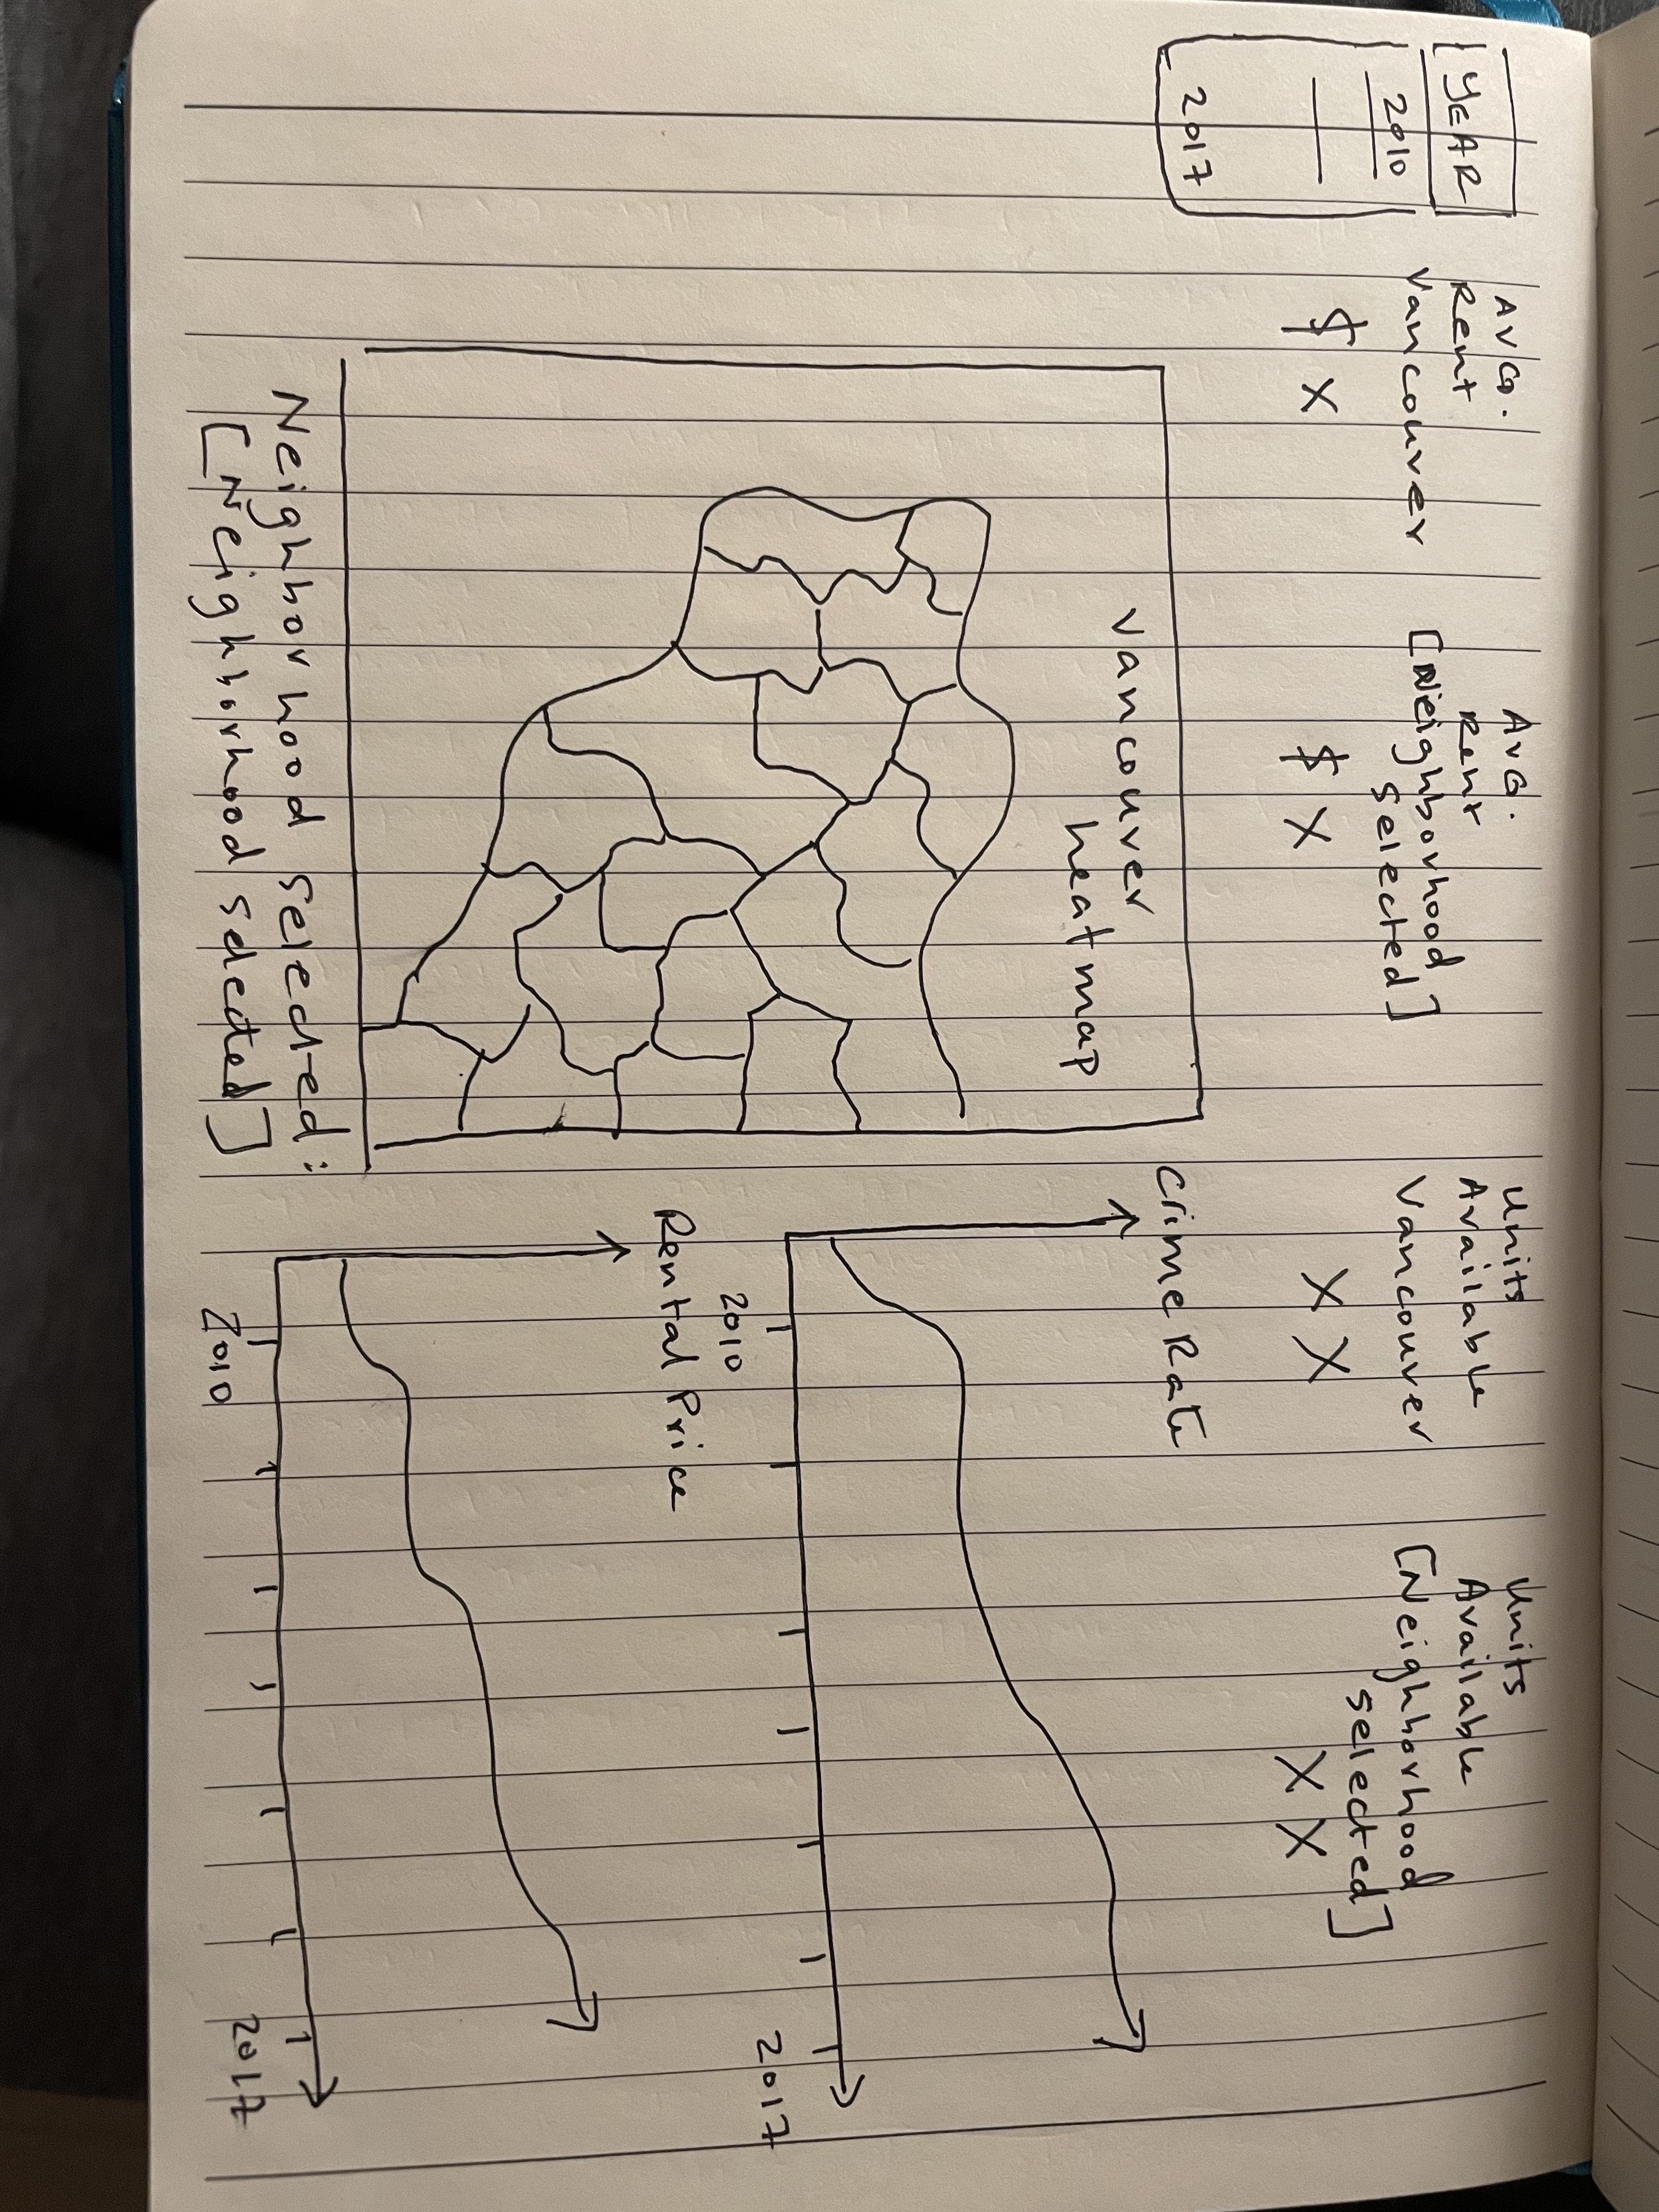 [YEAR]
2010
2017
AVG.
Rent
Vancouver
$ X
AVG.
Rent
[Neighborhood
selected]
$ X
Units
Available
Vancouver
X X
Units
Available
[Neighborhood
selected]
X X
Vancouver
heatmap
Neighborhood selected:
[Neighborhood selected]
Crime Rate
2010
2017
Rental Price
2010
2017